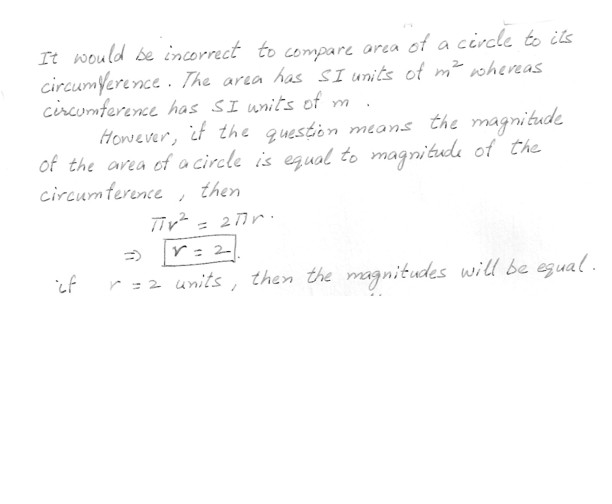 It would be incorrect to compare area of a circle to its
circumference. The area has SI units of m² whereas
circumference has SI units of m.
However, if the question means the magnitude
of the area of a circle is equal to magnitude of the
circumference, then
πr² = 2πr.
⇒ r = 2.
if r = 2 units, then the magnitudes will be equal.